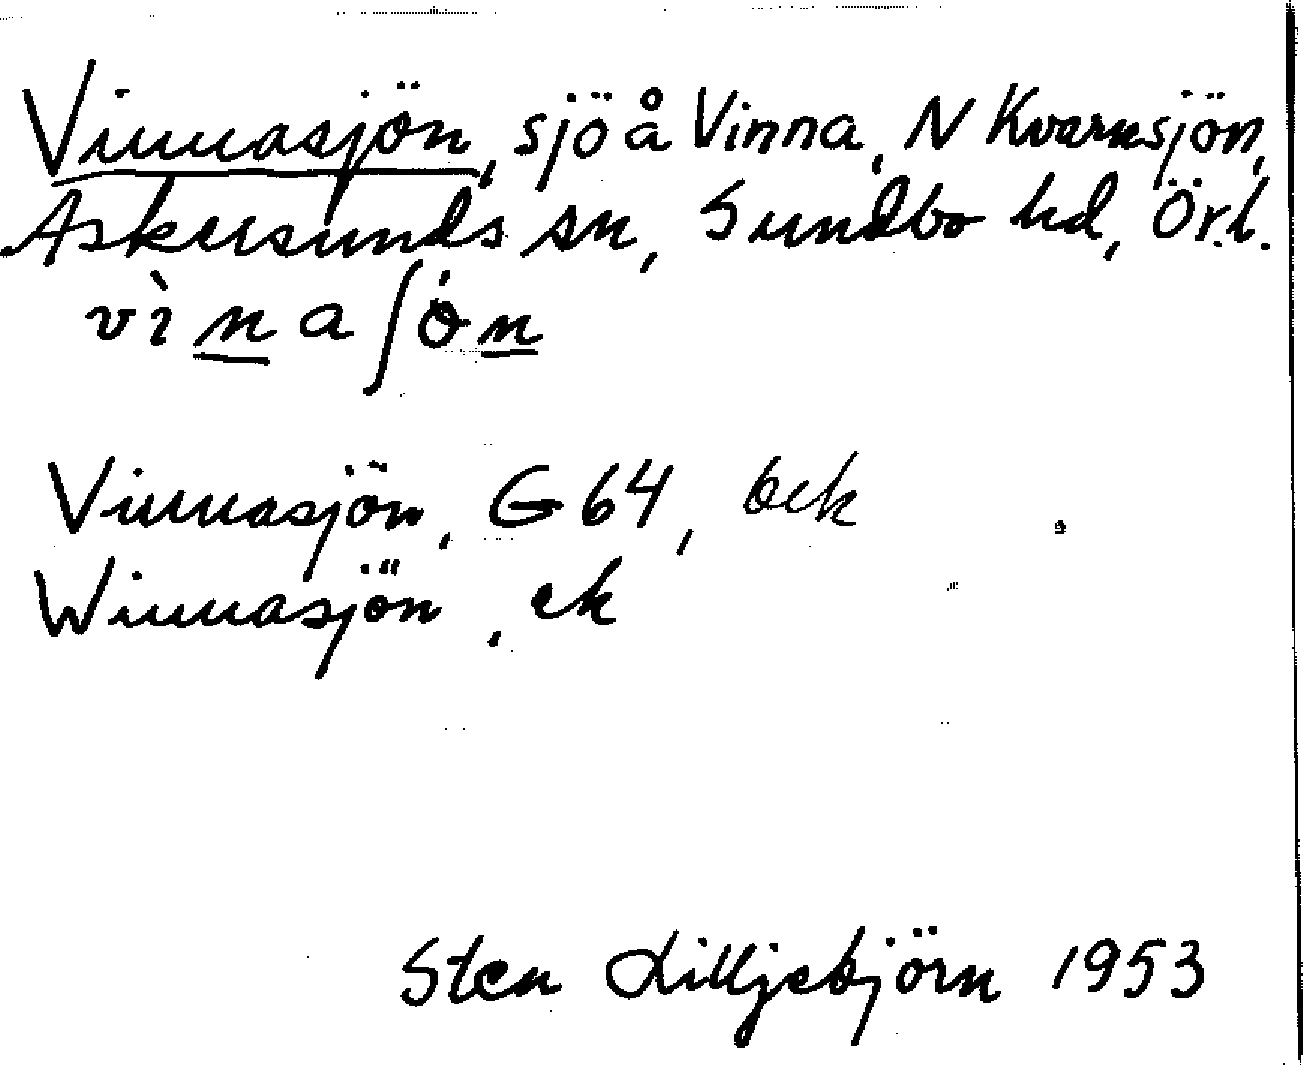 Vinnasjön, sjö å Vinna, N Kvarnsjön,
Askersunds sn, Sundbo hd, Ör.l.
vìnaʃön
Vinnasjön, G 64, bek
Winnasjön, ek
Sten Lilljebjörn 1953